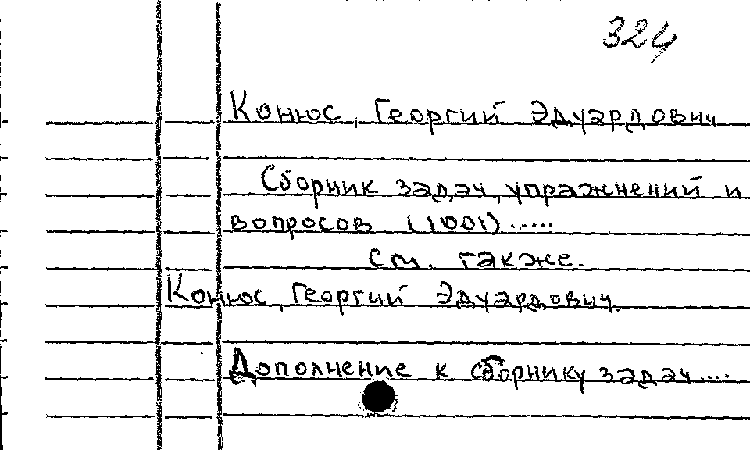 324
Конюс, Георгий Эдуардович
Сборник задач, упражнений и
вопросов (1001).....
См. также.
Конюс, Георгий Эдуардович.
Дополнение к сборнику задач....